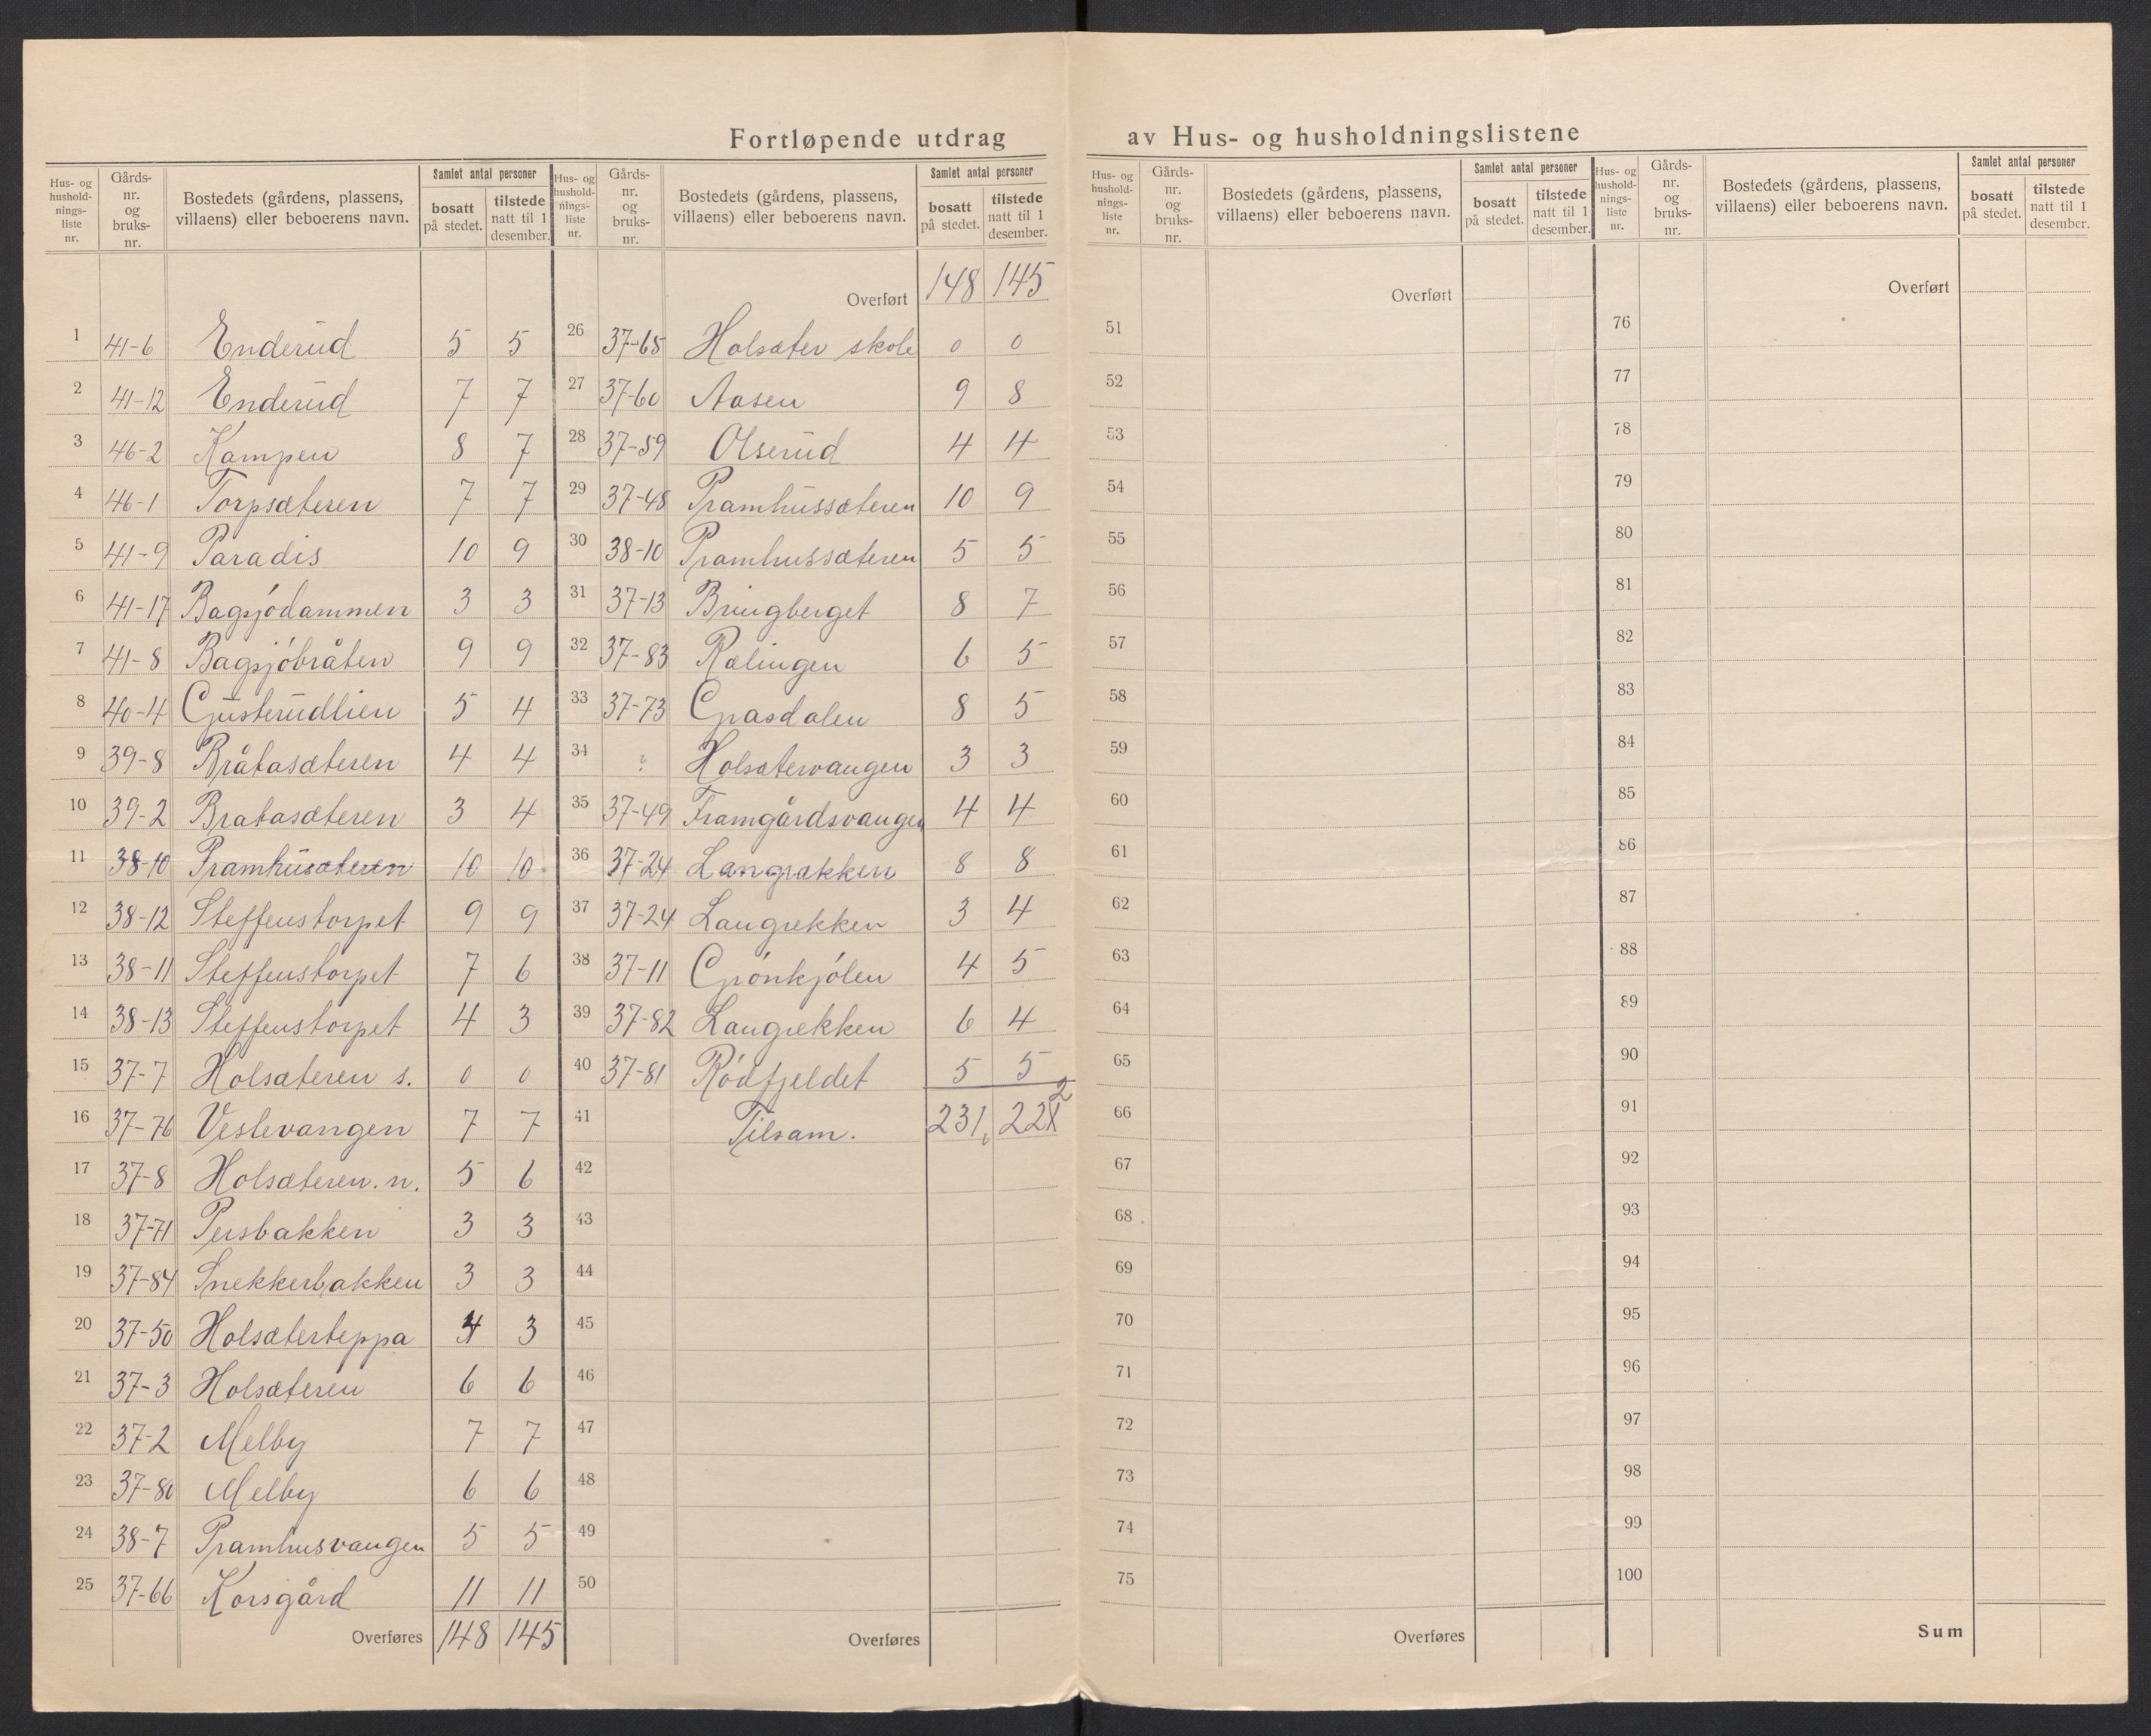 Fortløpende utdrag av Hus- og husholdningslistene
Hus- og husholdnings-liste nr. | Gårds-nr. og bruks-nr. | Bostedets (gårdens, plassens, villaens) eller beboerens navn. | Samlet antal personer | bosatt på stedet. | tilstede natt til 1 desember.
1 41-6 Enderud 5 5
2 41-12 Enderud 7 7
3 46-2 Kampen 8 7
4 46-1 Torpsæteren 7 7
5 41-9 Paradis 10 9
6 41-17 Bagsjødammen 3 3
7 41-8 Bagsjøbråten 9 9
8 40-4 Gusterudlien 5 4
9 39-8 Bråtasæteren 4 4
10 39-2 Bratasæteren 3 4
11 38-10 Pramhusæteren 10 10
12 38-12 Steffenstorpet 9 9
13 38-11 Steffenstorpet 7 6
14 38-13 Steffenstorpet 4 3
15 37-7 Holsæteren s. 0 0
16 37-76 Veslevangen 7 7
17 37-8 Holsæteren. n. 5 6
18 37-71 Persbakken 3 3
19 37-84 Snekkerbakken 3 3
20 37-50 Holsæterteppa 4 3
21 37-3 Holsæteren 6 6
22 37-2 Melby 7 7
23 37-80 Melby 6 6
24 38-7 Pramhusvangen 5 5
25 37-66 Korsgård 11 11
Overføres 148 145
Hus- og husholdnings-liste nr. | Gårds-nr. og bruks-nr. | Bostedets (gårdens, plassens, villaens) eller beboerens navn. | Samlet antal personer | bosatt på stedet. | tilstede natt til 1 desember.
Overført 148 145
26 37-65 Holsæter skole 0 0
27 37-60 Aasen 9 8
28 37-59 Olserud 4 4
29 37-48 Pramhussæteren 10 9
30 38-10 Pramhussæteren 5 5
31 37-13 Bringberget 8 7
32 37-83 Rælingen 6 5
33 37-73 Grasdalen 8 5
34 ? Holsætervangen 3 3
35 37-49 Framgårdsvangen 4 4
36 37-24 Langrækken 8 8
37 37-24 Langrekken 3 4
38 37-11 Grønkjølen 4 5
39 37-82 Langrekken 6 4
40 37-81 Rødfjeldet 5 5
41 Tilsam. 231 222
42
43
44
45
46
47
48
49
50
Overføres
Hus- og husholdnings-liste nr. | Gårds-nr. og bruks-nr. | Bostedets (gårdens, plassens, villaens) eller beboerens navn. | Samlet antal personer | bosatt på stedet. | tilstede natt til 1 desember.
Overført
51
52
53
54
55
56
57
58
59
60
61
62
63
64
65
66
67
68
69
70
71
72
73
74
75
Overføres
Hus- og husholdnings-liste nr. | Gårds-nr. og bruks-nr. | Bostedets (gårdens, plassens, villaens) eller beboerens navn. | Samlet antal personer | bosatt på stedet. | tilstede natt til 1 desember.
Overført
76
77
78
79
80
81
82
83
84
85
86
87
88
89
90
91
92
93
94
95
96
97
98
99
100
Sum